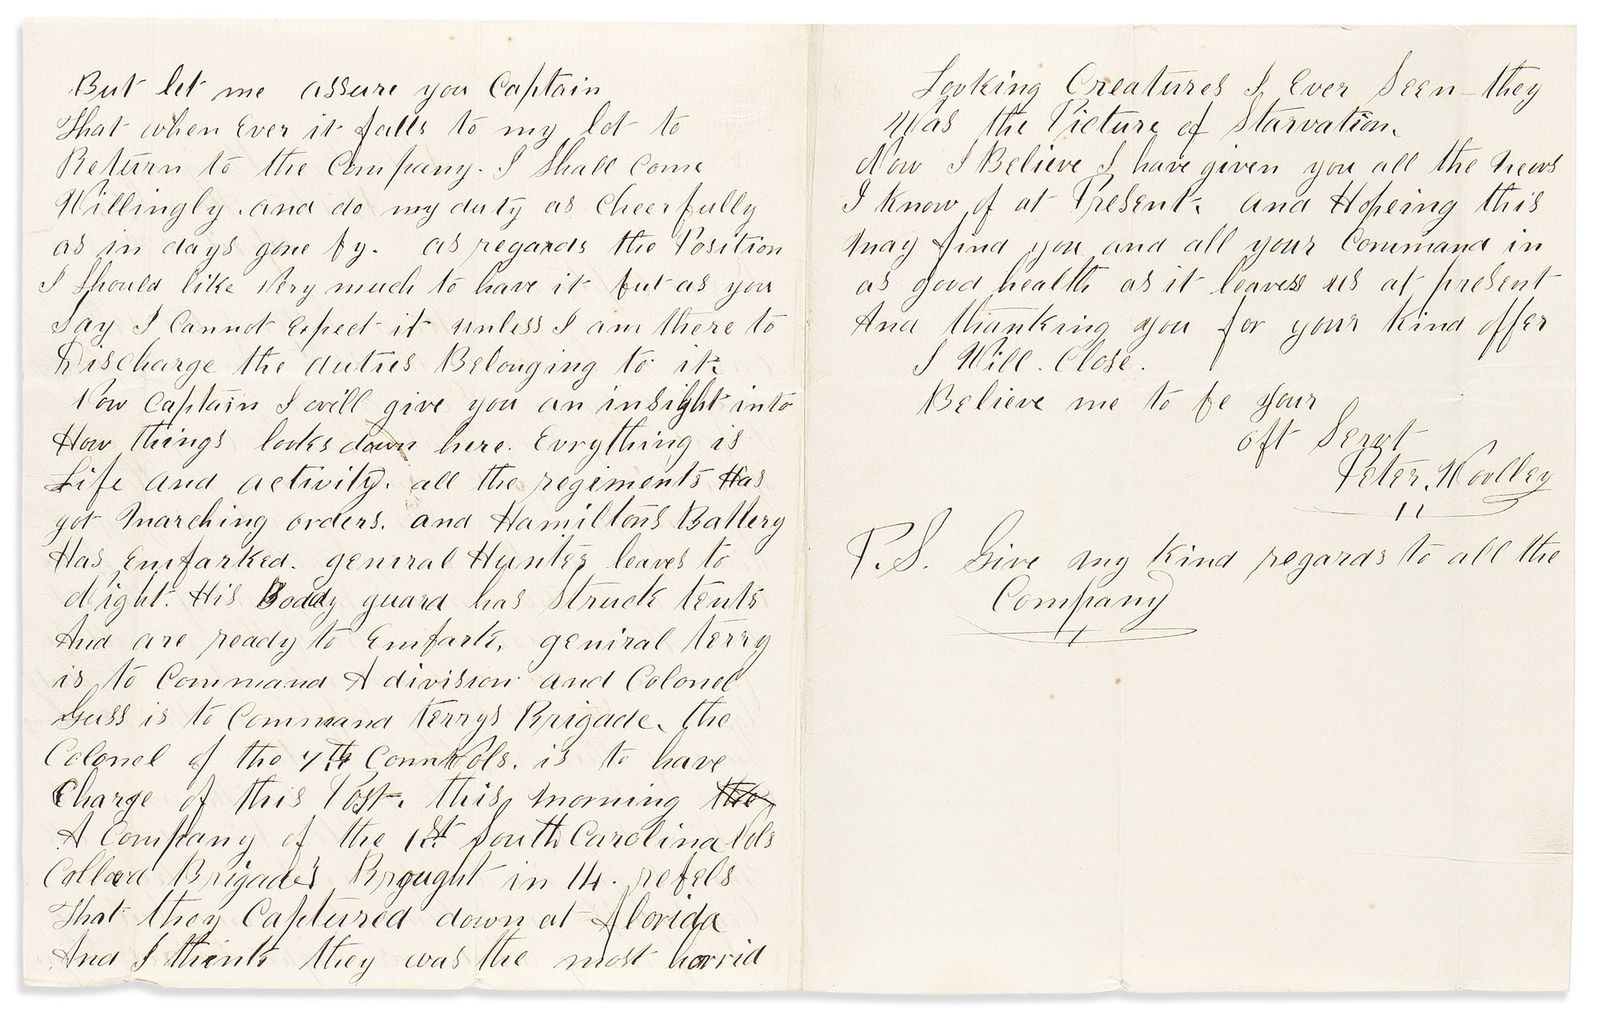 But let me assure you Captain
That when Ever it falls to my lot to
Return to the Company. I Shall come
Willingly. and do my duty as Cheerfully
as in days gone by. as regards the Position
I Should like Very much to have it but as you
Say I Cannot Expect it unless I am there to
Discharge the duties Belonging to it.
Now Captain I will give you an insight into
How things looks down here. Evrything is
Life and activity. all the regiments Has
got marching orders. and Hamiltons Battery
Has Embarked. general Hunter leaves to
Night. His Boddy guard has Struck tents
And are ready to Embark. geniral terry
is to Command A division and Colonel
Guss is to Command terrys Brigade. the
Colonel of the 7th Conn Vols. is to have
Charge of this Post. this morning the
A Company of the 1st South Carolina Vols
Collord Brigades Brought in 14. rebels
That they Captured down at Florida
And I think they was the most horrid
Looking Creatures I Ever Seen - they
Was the Picture of Starvation.
Now I Believe I have given you all the news
I know of at Present. and Hopeing this
may find you and all your Command in
as good health as it leaves us at present
And thanking you for your kind offer
I Will. Close.
Believe me to be your
obt Servt
Peter. Woolley
P.S. Give my kind regards to all the
Company